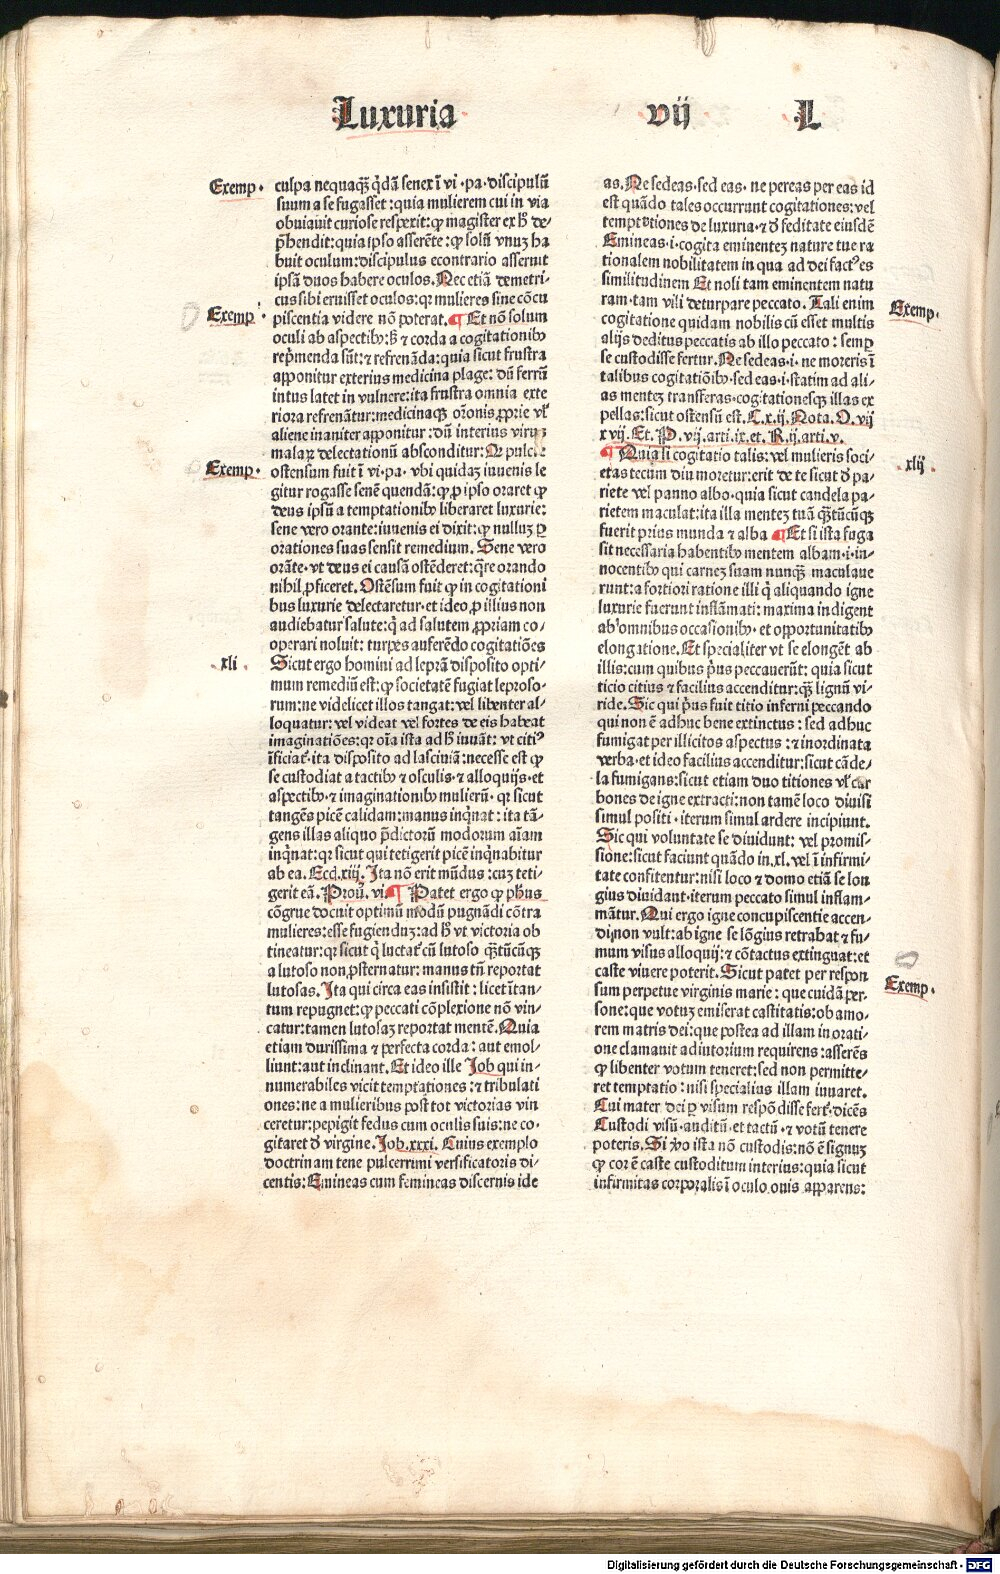 Luxuria vij L
Exemp.
culpa nequaq̄ꝫ q̄dā senex ī vi · pa · discipulū
suum a se fugasset : quia mulierem cui in via
obuiauit curiose respexit : ꝙ magister ex h̄ de⸗
p̄hendit : quia ipso asserēte : ꝙ solū vnuꝫ ha
buit oculum : discipulus econtrario asseruit
ipsū duos habere oculos. Nec etiā demetri⸗
cus sibi eruisset oculos : qꝛ mulieres sine cōcu
Exemp
piscentia videre nō poterat. ¶ Et nō solum
oculi ab aspectibꝰ : h̄ ⁊ corda a cogitationibꝰ
rep̄menda sūt : ⁊ refrenāda : quia sicut frustra
apponitur exterius medicina plage : dū ferrū
intus latet in vulnere : ita frustra omnia exte
riora refrenātur : medicinaqꝫ or̄onis ꝓprie vl̄
aliene inaniter apponitur : dū interius virus
malaꝝ delectationū absconditur :
Exemp.
ostensum fuit ī vi · pa · vbi quidaꝫ iuuenis le
gitur rogasse senē quendā : ꝙ ꝓ ipso oraret ꝙ
deus ipsū a temptationibꝰ liberaret luxurie :
sene vero orante : iuuenis ei dixit : ꝙ nulluꝫ ꝑ
orationes suas sensit remedium. Sene vero
orāte · vt deus ei causā ostēderet : q̄re orando
nihil ꝓficeret. Ostēsum fuit ꝙ in cogitationi
bus luxurie delectaretur · et ideo ꝓ illius non
audiebatur salute : q̄ ad salutem ꝓpriam co⸗
operari noluit : turpes auferēdo cogitatiōes
xli.
Sicut ergo homini ad leprā disposito opti⸗
mum remediū est : ꝙ societatē fugiat leproso⸗
rum : ne videlicet illos tangat : vel libenter al⸗
loquatur : vel videat vel fortes de eis habeat
imaginatiōes : qꝛ oīa ista ad h̄ iuuāt : vt citiꝰ
īficiat᷑ · ita disposito ad lasciuiā : necesse est ꝙ
se custodiat a tactibꝰ ⁊ osculis · ⁊ alloquijs · et
aspectibꝰ · ⁊ imaginationibꝰ mulierū · qꝛ sicut
tangēs picē calidam : manus inq̄nat : ita tā⸗
gens illas aliquo p̄dictorū modorum aīam
inq̄nat : qꝛ sicut qui tetigerit picē inq̄nabitur
ab ea. Eccl̄. xiij. Ita nō erit mūdus : cuꝫ teti⸗
gerit eā. Prou̅. vi. ¶ Patet ergo ꝙ ph̄us
cōgrue docuit optimū modū pugnādi cōtra
mulieres : esse fugienduꝫ : ad h̄ vt victoria ob
tineatur : qꝛ sicut q̄ luctat᷑ cū lutoso q̄ꝫtūcūqꝫ
a lutoso non ꝓsternatur : manus tn̄ reportat
lutosas. Ita qui circa eas insistit : licet ītan⸗
tum repugnet : ꝙ peccati cōplexione nō vin⸗
catur : tamen lutosaꝫ reportat mentē. Quia
etiam durissima ⁊ perfecta corda : aut emol⸗
liunt : aut inclinant. Et ideo ille Job qui in⸗
numerabiles vicit temptationes : ⁊ tribulati
ones : ne a mulieribus post tot victorias vin
ceretur : pepigit fedus cum oculis suis : ne co⸗
gitaret ꝺ virgine. Job. xxxi. Cuius exemplo
doctrinam tene pulcerrimi versificatoris di⸗
centis : Emineas cum femineas discernis ide
as. Ne sedeas · sed eas · ne pereas per eas id
est quādo tales occurrunt cogitationes : vel
tempt̄tiones de luxuria · ⁊ ꝺ feditate eiusdē
Emineas · i · cogita eminenteꝫ nature tue ra
tionalem nobilitatem in qua ad dei factꝰ es
similitudinem Et noli tam eminentem natu
ram · tam vili deturpare peccato. Tali enim
Exemp.
cogitatione quidam nobilis cū esset multis
alijs deditus peccatis ab illo peccato : semꝑ
se custodisse fertur. Ne sedeas · i · ne moreris ī
talibus cogitatiōibꝰ · sed eas · i · statim ad ali⸗
as menteꝫ transferas · cogitationesqꝫ illas ex
pellas : sicut ostensū est. C. x. ij. Nota. O. vij
xvij. Et. P. vij. arti. ix. et. R. ij. arti. v.
xlij.
¶ Quia si cogitatio talis : vel mulieris soci⸗
etas tecum diu moretur : erit de te sicut ꝺ pa⸗
riete vel panno albo · quia sicut candela pa⸗
rietem maculat : ita illa menteꝫ tuā q̄ꝫtūcūqꝫ
fuerit prius munda ⁊ alba ¶ Et si ista fuga
sit necessaria habentibꝰ mentem albam · i · in⸗
nocentibꝰ qui carneꝫ suam nunqꝫ̄ maculaue
runt : a fortiori ratione illi q̄ aliquando igne
luxurie fuerunt inflāmati : maxima indigent
ab omnibus occasionibꝰ · et opportunitatibꝰ
elongatione. Et specialiter vt se elongēt ab
illis : cum quibus p̄us peccauerūt : quia sicut
ticio citius ⁊ facilius accenditur : q̄ꝫ lignū vi⸗
ride. Sic qui p̄us fuit titio inferni peccando
qui non ē adhuc bene extinctus : sed adhuc
fumigat per illicitos aspectus : ⁊ inordinata
verba · et ideo facilius accenditur : sicut cāde⸗
la fumigans : sicut etiam duo titiones vl̄ car
bones de igne extracti : non tamē loco diuisi
simul positi · iterum simul ardere incipiunt.
Sic qui voluntate se diuidunt : vel promis⸗
sione : sicut faciunt quādo in. xl. vel ī infirmi⸗
tate confitentur : nisi loco ⁊ domo etiā se lon
gius diuidant · iterum peccato simul inflam⸗
māntur. Qui ergo igne concupiscentie accen⸗
di non vult : ab igne se lōgius retrahat ⁊ fu⸗
mum visus alloquij : ⁊ cōtactus extinguat : et
caste viuere poterit. Sicut patet per respon
Exemp.
sum perpetue virginis marie : que cuidā per⸗
sone : que votuꝫ emiserat castitatis : ob amo⸗
rem matris dei : que postea ad illam in orati⸗
one clamauit adiutorium requirens : asserēs
ꝙ libenter votum teneret : sed non permitte⸗
ret temptatio : nisi specialius illam iuuaret.
Cui mater dei ꝑ visum respōdisse fert᷑ · dicēs
Custodi visū · auditū · et tactū · ⁊ votū tenere
poteris. Si vo ista nō custodis : nō ē signuꝫ
ꝙ cor ē caste custoditum interius : quia sicut
infirmitas corporalis ī oculo ouis apparens :
Digitalisierung gefördert durch die Deutsche Forschungsgemeinschaft · DFG